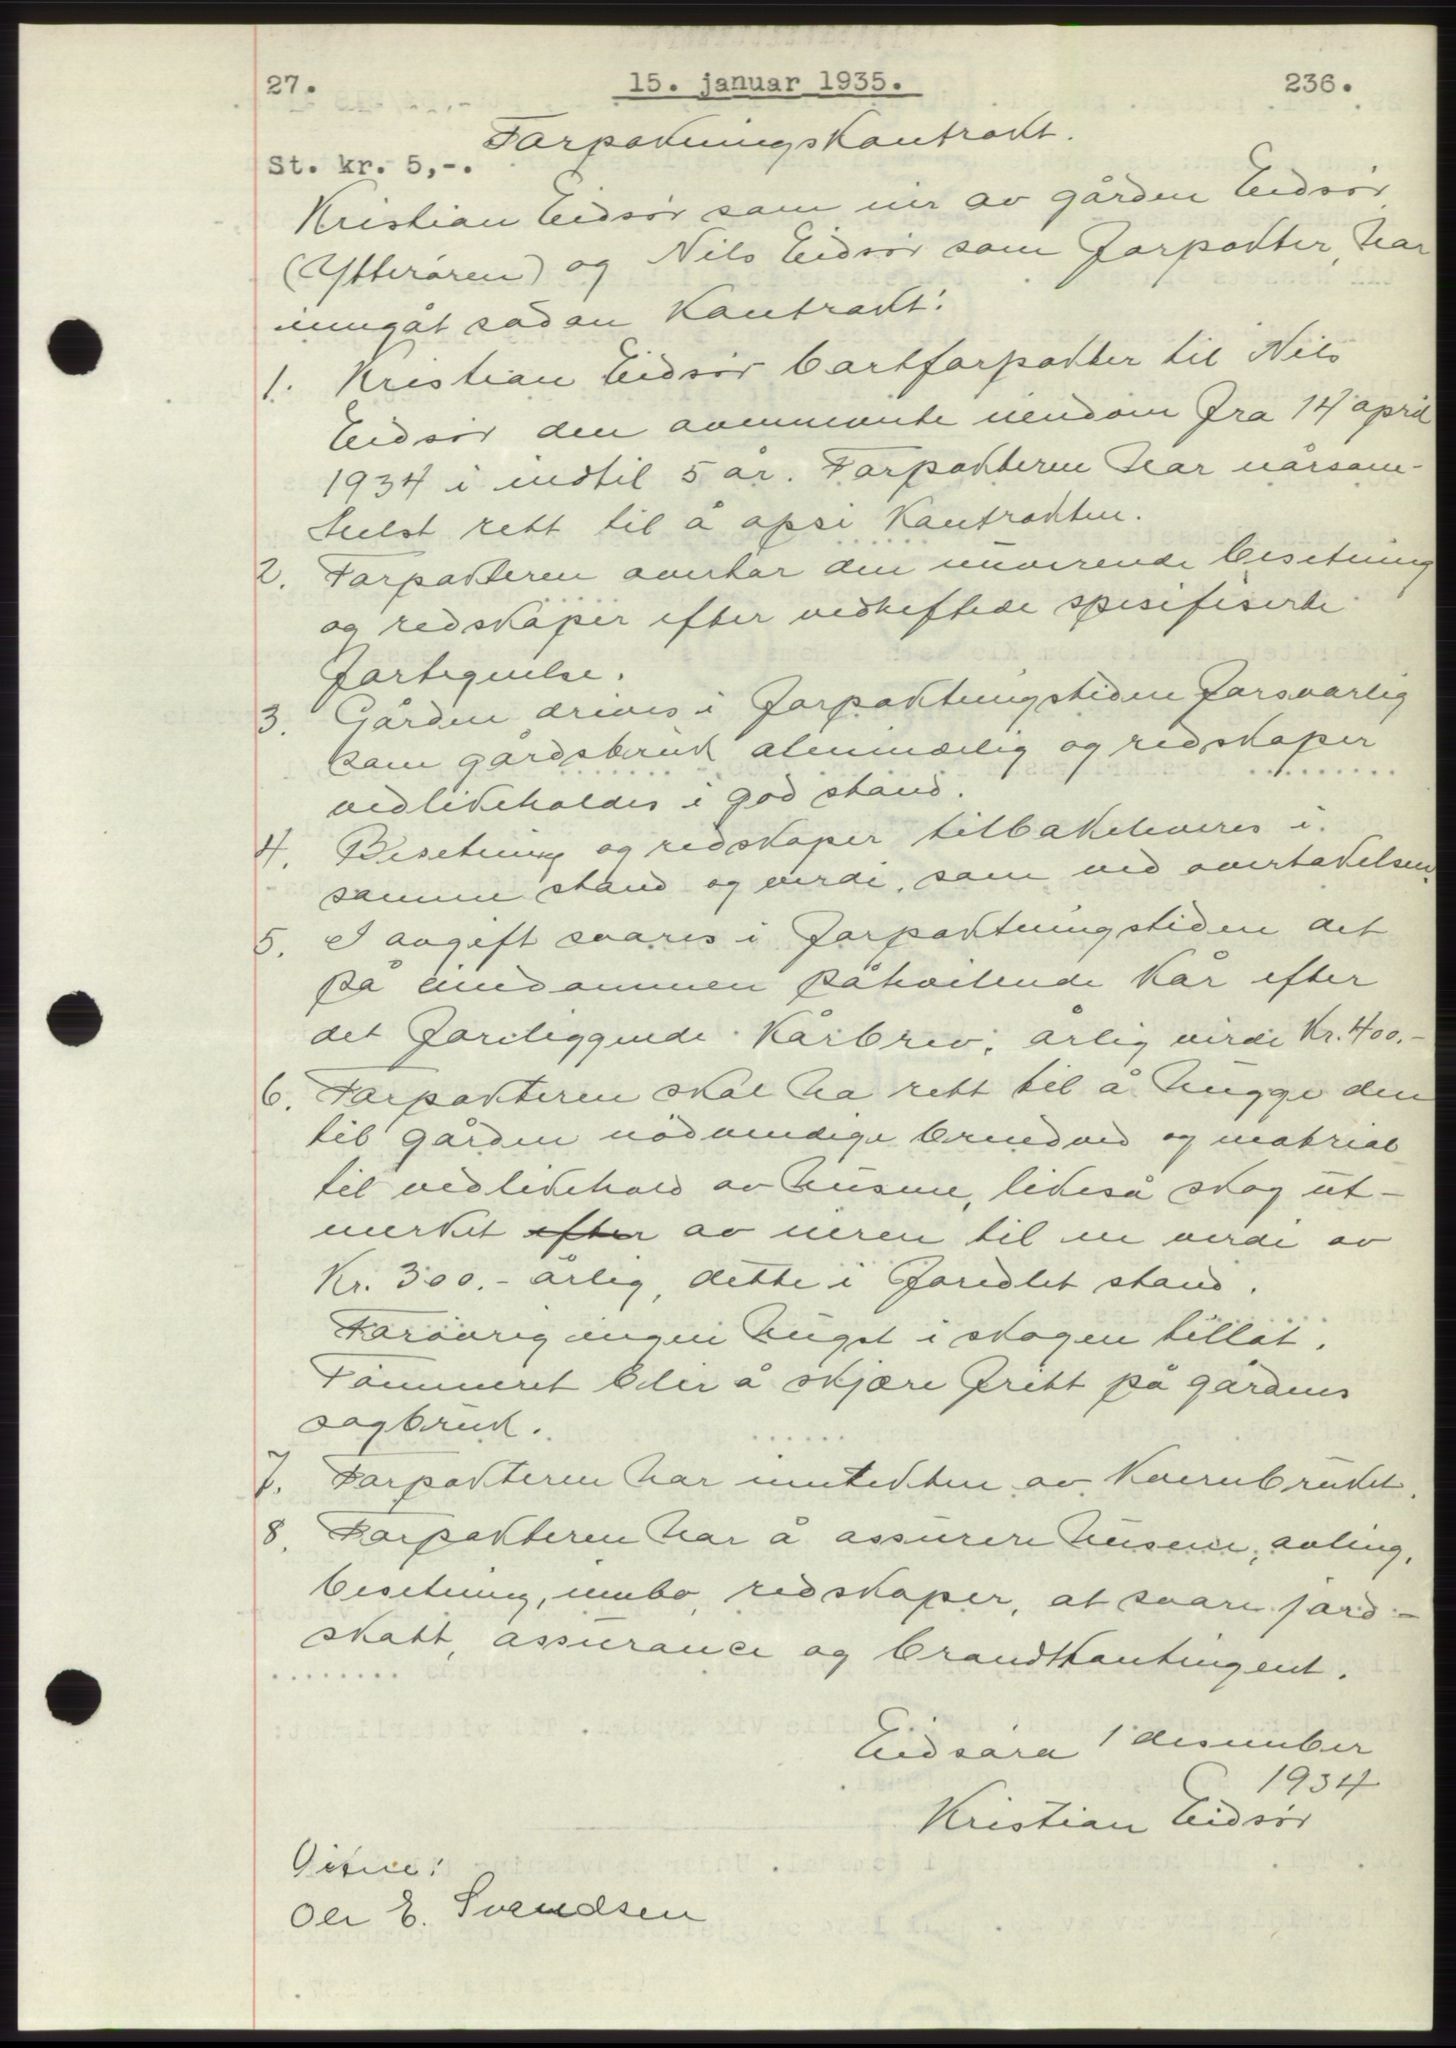 27. 15. januar 1935. 236.
Forpaktningskontrakt.
St. kr. 5,-.
Kristian Eidsør som eier av gården Eidsør
(Ytterøren) og Nils Eidsør som forpakter, har
inngåt sådan kontrakt:
1. Kristian Eidsør bortforpakter til Nils
Eidsør den ovennevnte eiendom fra 14 april
1934 i indtil 5 år. Forpakteren har nårsom-
helst rett til å opsi kontrakten.
2. Forpakteren overtar den nuverende besetning
og redskaper efter vedheftede spesifiserte
fortegnelse.
3. Gården drives i forpaktningstiden forsvarlig
som gårdsbruk alminnelig og redskaper
vedlikeholdes i god stand.
4. Besetning og redskaper tilbakeleveres i
samme stand og verdi, som ved overtakelsen.
5. I avgift svares i forpaktningstiden det
på eiendommen påhvilende kår efter
det foreliggende kårbrev, årlig verdi Kr. 400.-
6. Forpakteren skal ha rett til å hugge den
til gården nödvendige brendved og matrial
til vedlikehold av husene, likeså skog ut-
merket efter av eieren til en verdi av
Kr. 300.- årlig, dette i foredlet stand.
Forövrig ingen hugst i skogen tillåt.
Tömmeret blir å skjære fritt på gårdens
sagbruk.
7. Forpakteren har inntekten av kvernbruket.
8. Forpakteren har å assurere husene, avling,
besetning, innbo, redskaper, at svare jord-
skatt, assurance og brandkontingent.
Eidsöra 1 desember
1934
Kristian Eidsør
Vitne:
Ole E. Svendsen